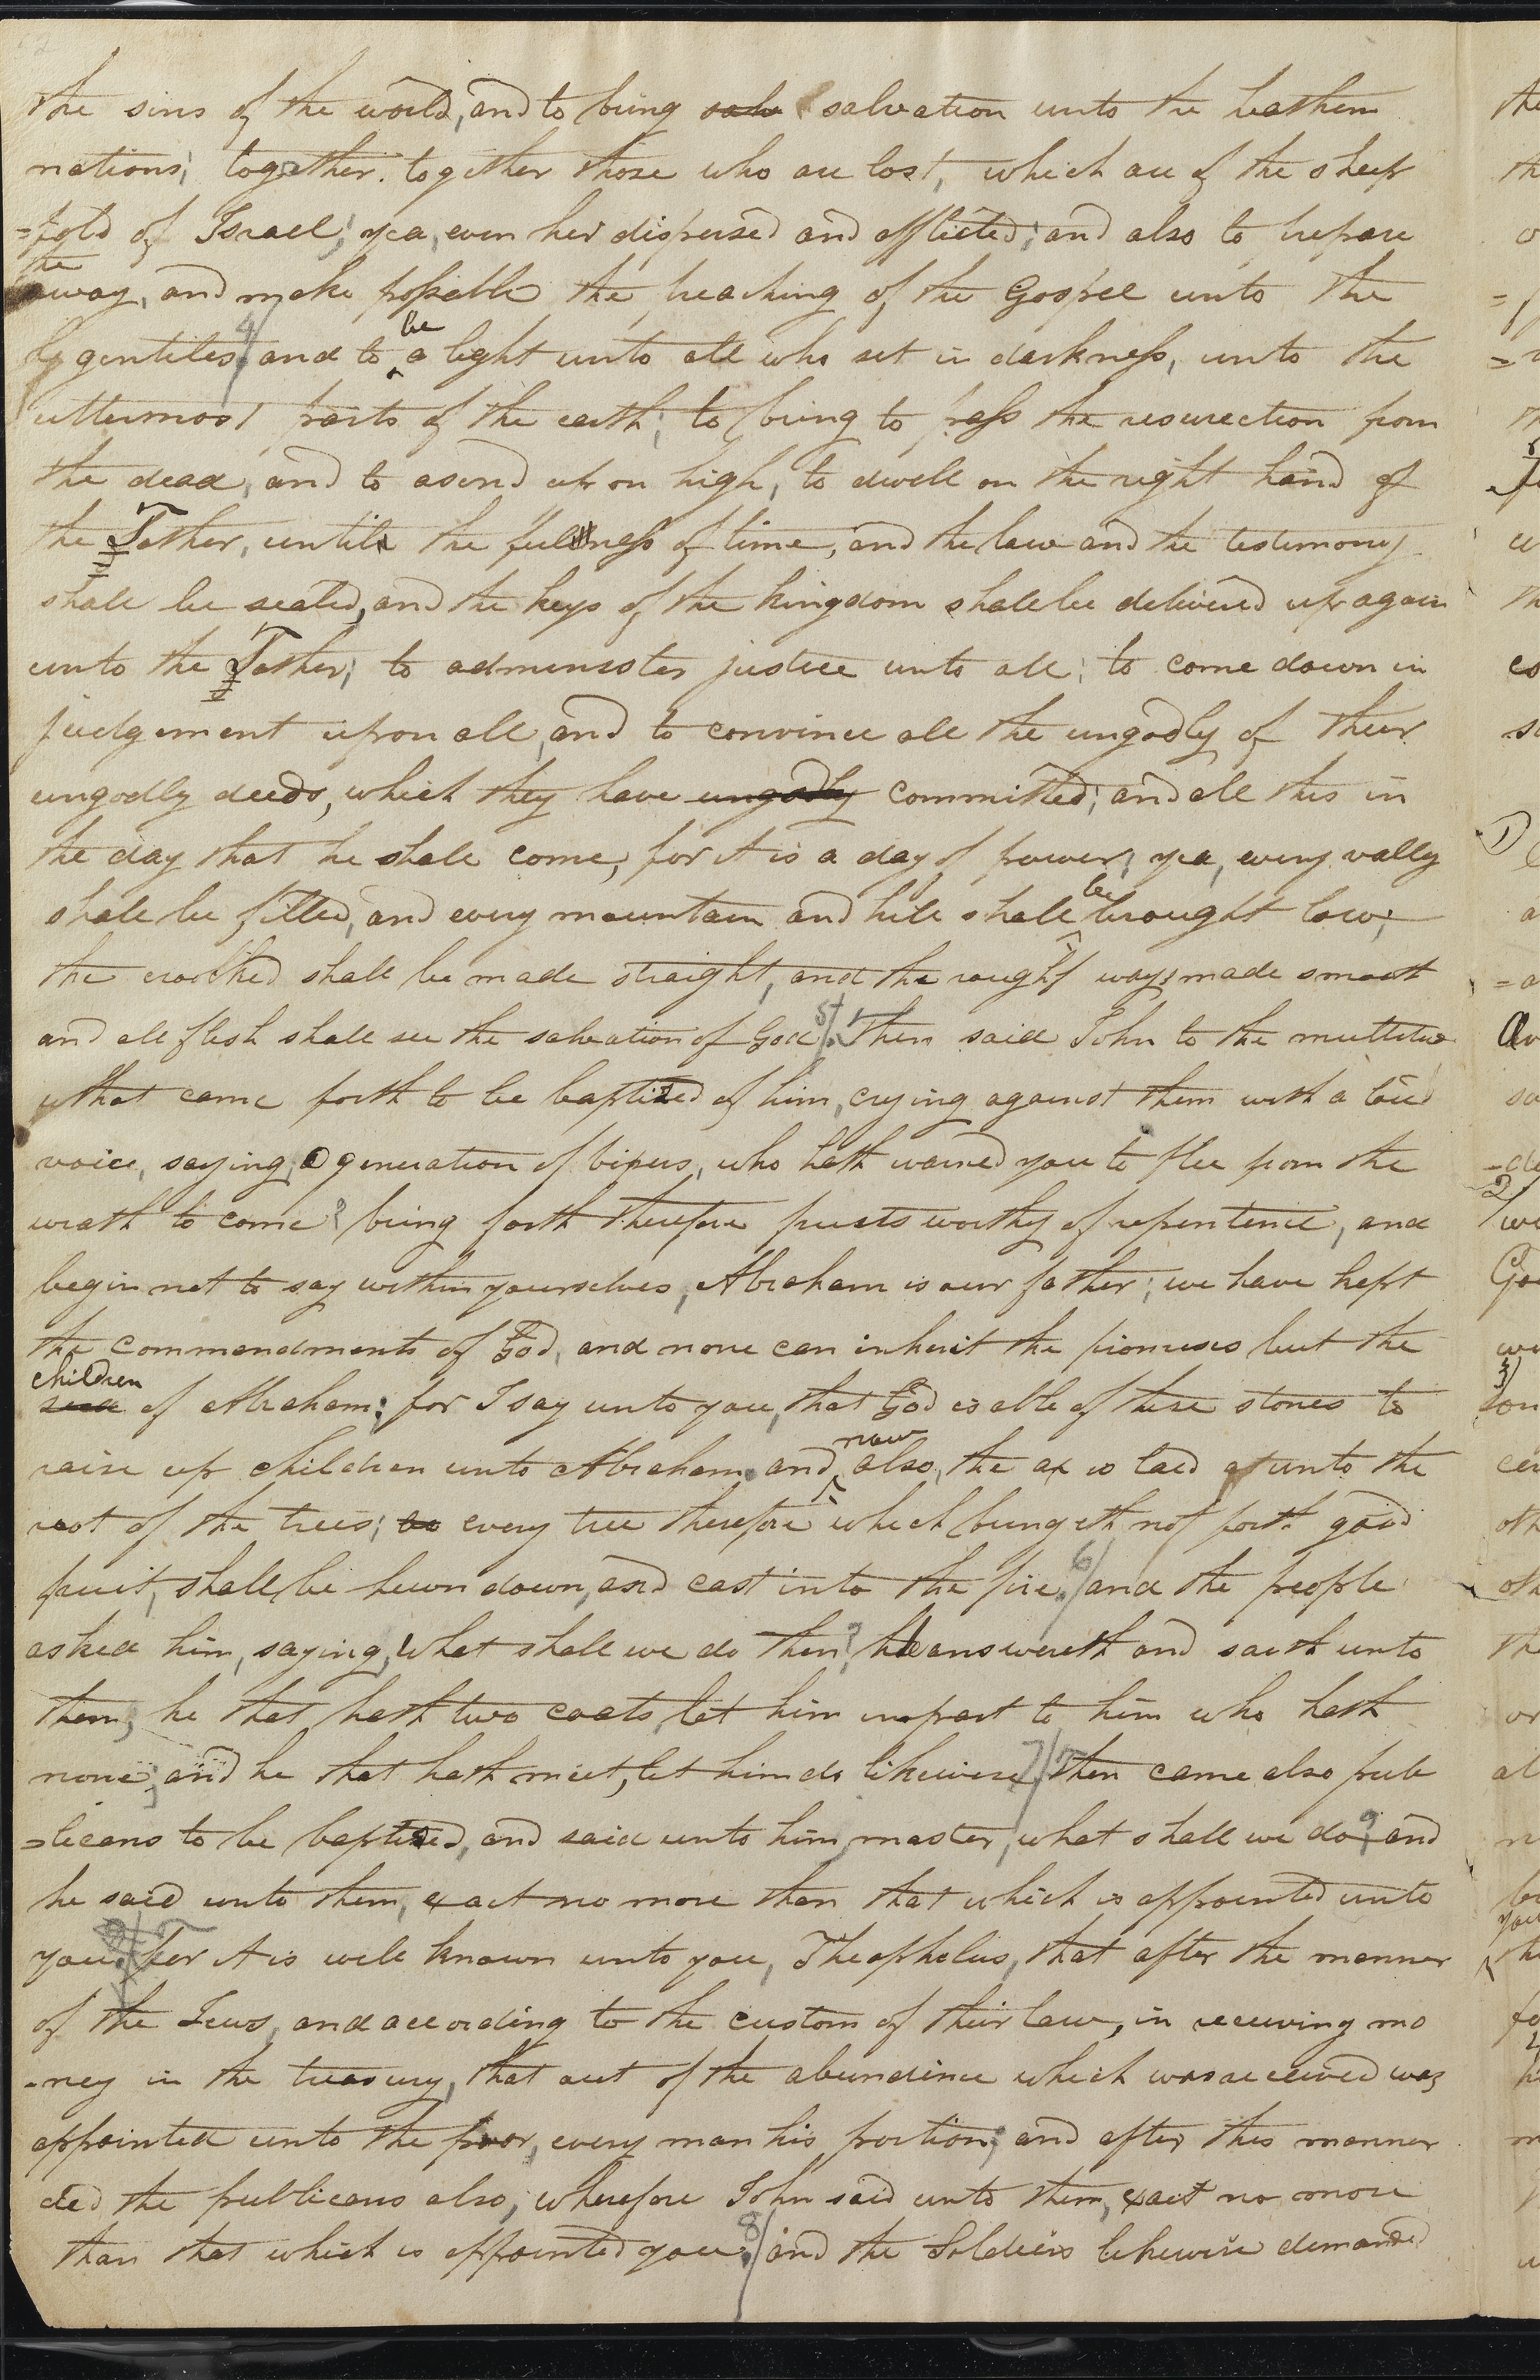 the sins of the world, and to bring salv salvation unto the heathen
nations; together. together those who are lost, which are of the sheep
=fold of Israel; yea, even her dispersed and afflicted; and also to prepare
the
way, and make possible the, preaching of the Gospel unto the
be
gentiles 4/ and to a light unto all who set in darkness, unto the
uttermost parts of the earth; to bring to pass the resurection from
the dead, and to asend up on high, to dwell on the right hand of
the Father, until the fulness of time, and the law and the testimony
shall be sealed, and the keys of the kingdom shall be delivered up again
unto the Father; to adminester justice unto all; to come down in
judgement upon all, and to convince all the ungodly of their
ungodly deeds, which they have ungodly committed; and all this in
the day that he shall come, for it is a day of power; yea, every vally
be
shall be filled, and every mountain and hill shall brought low;
the crooked shall be made straight, and the rough ways made smooth
and all flesh shall see the salvation of God 5/. Then said John to the multitude
that came forth to be baptized of him, crying against them with a loud
voice, saying, O generation of vipers, who hath warned you to flee from the
wrath to come? bring forth therefore fruits worthy of repentence, and
begin not to say within yourselves, Abraham is our father; we have kept
the commandments of God, and none can inherit the promises but the
children
seed of Abraham; for I say unto you, that God is able of these stones to
now
raise up children unto Abraham. and also, the ax is laid at unto the
root of the trees; so every tree therefore which bringeth not forth good
fruit, shall be hewn down, and cast into the fire. 6/ and the people
asked him, saying, What shall we do then? he answereth and saith unto
them; he that hath two coats, let him impart to him who hath
none; and he that hath meet, let him do likewise. 7/ then came also pub
=licans to be baptized, and said unto him, master, what shall we do? and
he said unto them, exact no more than that which is appointed unto
you. For it is well known unto you, Theopholus, that after the manner
of the Jews, and according to the custom of their law, in receiving mo
-ney in the treasury, that out of the abundince which was received was
appointed unto the poor, every man his portion; and after this manner
did the publicans also; wherefore John said unto them, exact no more
than that which is appointed you. 8/ and the Soldiers likewise demanded